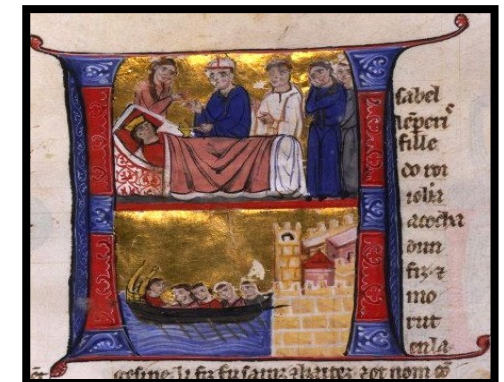 sabel
lemperi
fille
do roi
iohan
acocha
dun
fiz ⁊
mo
rut
enla
gesine li fiz fu sainz ⁊ haitez ⁊ ot nom